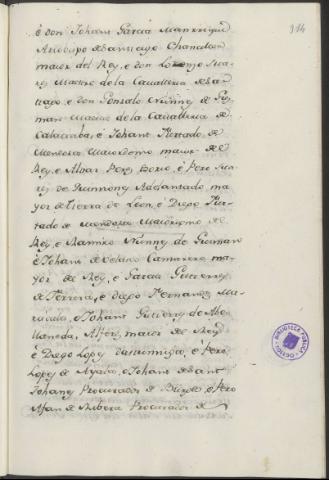 314
é don Johant Garcia Manrrique
Arzobispo de Santiago Chanciller
maior del Rey, e don Lorenzo Sua
rez Maestre de la Cavalleria de San
tiago, e don Gonzalo Nunnez de Guz
man Maestre de la Cavalleria de
Calatraba, é Johant Furtado de
Mendoza Maiordomo maior de el
Rey, e Alvar Perez Osorio, é Pero Sua
rez de Quinnones Adelantado ma
yor de tierra de Leon, é Diego Fur
tado de Mendoza Maiordomo de
Rey, e Ramiro Nunnez de Guzman
é Johant de Velasco Camarero ma
yor de Rey, e Garcia Gutierrez
de Ferrera, e Diego Fernandez Ma
riscal, e Johant Gutierrez de Abe
llaneda, Alferez maior de Rey
é Diego Lopez dastunniga, é Pero
Lopez de Ayala, e Johant de Sant
Johanz Procurador de Burgos, é Pero
Afan de Ribera Procurador de
BIBLIOTECA PUBLICA